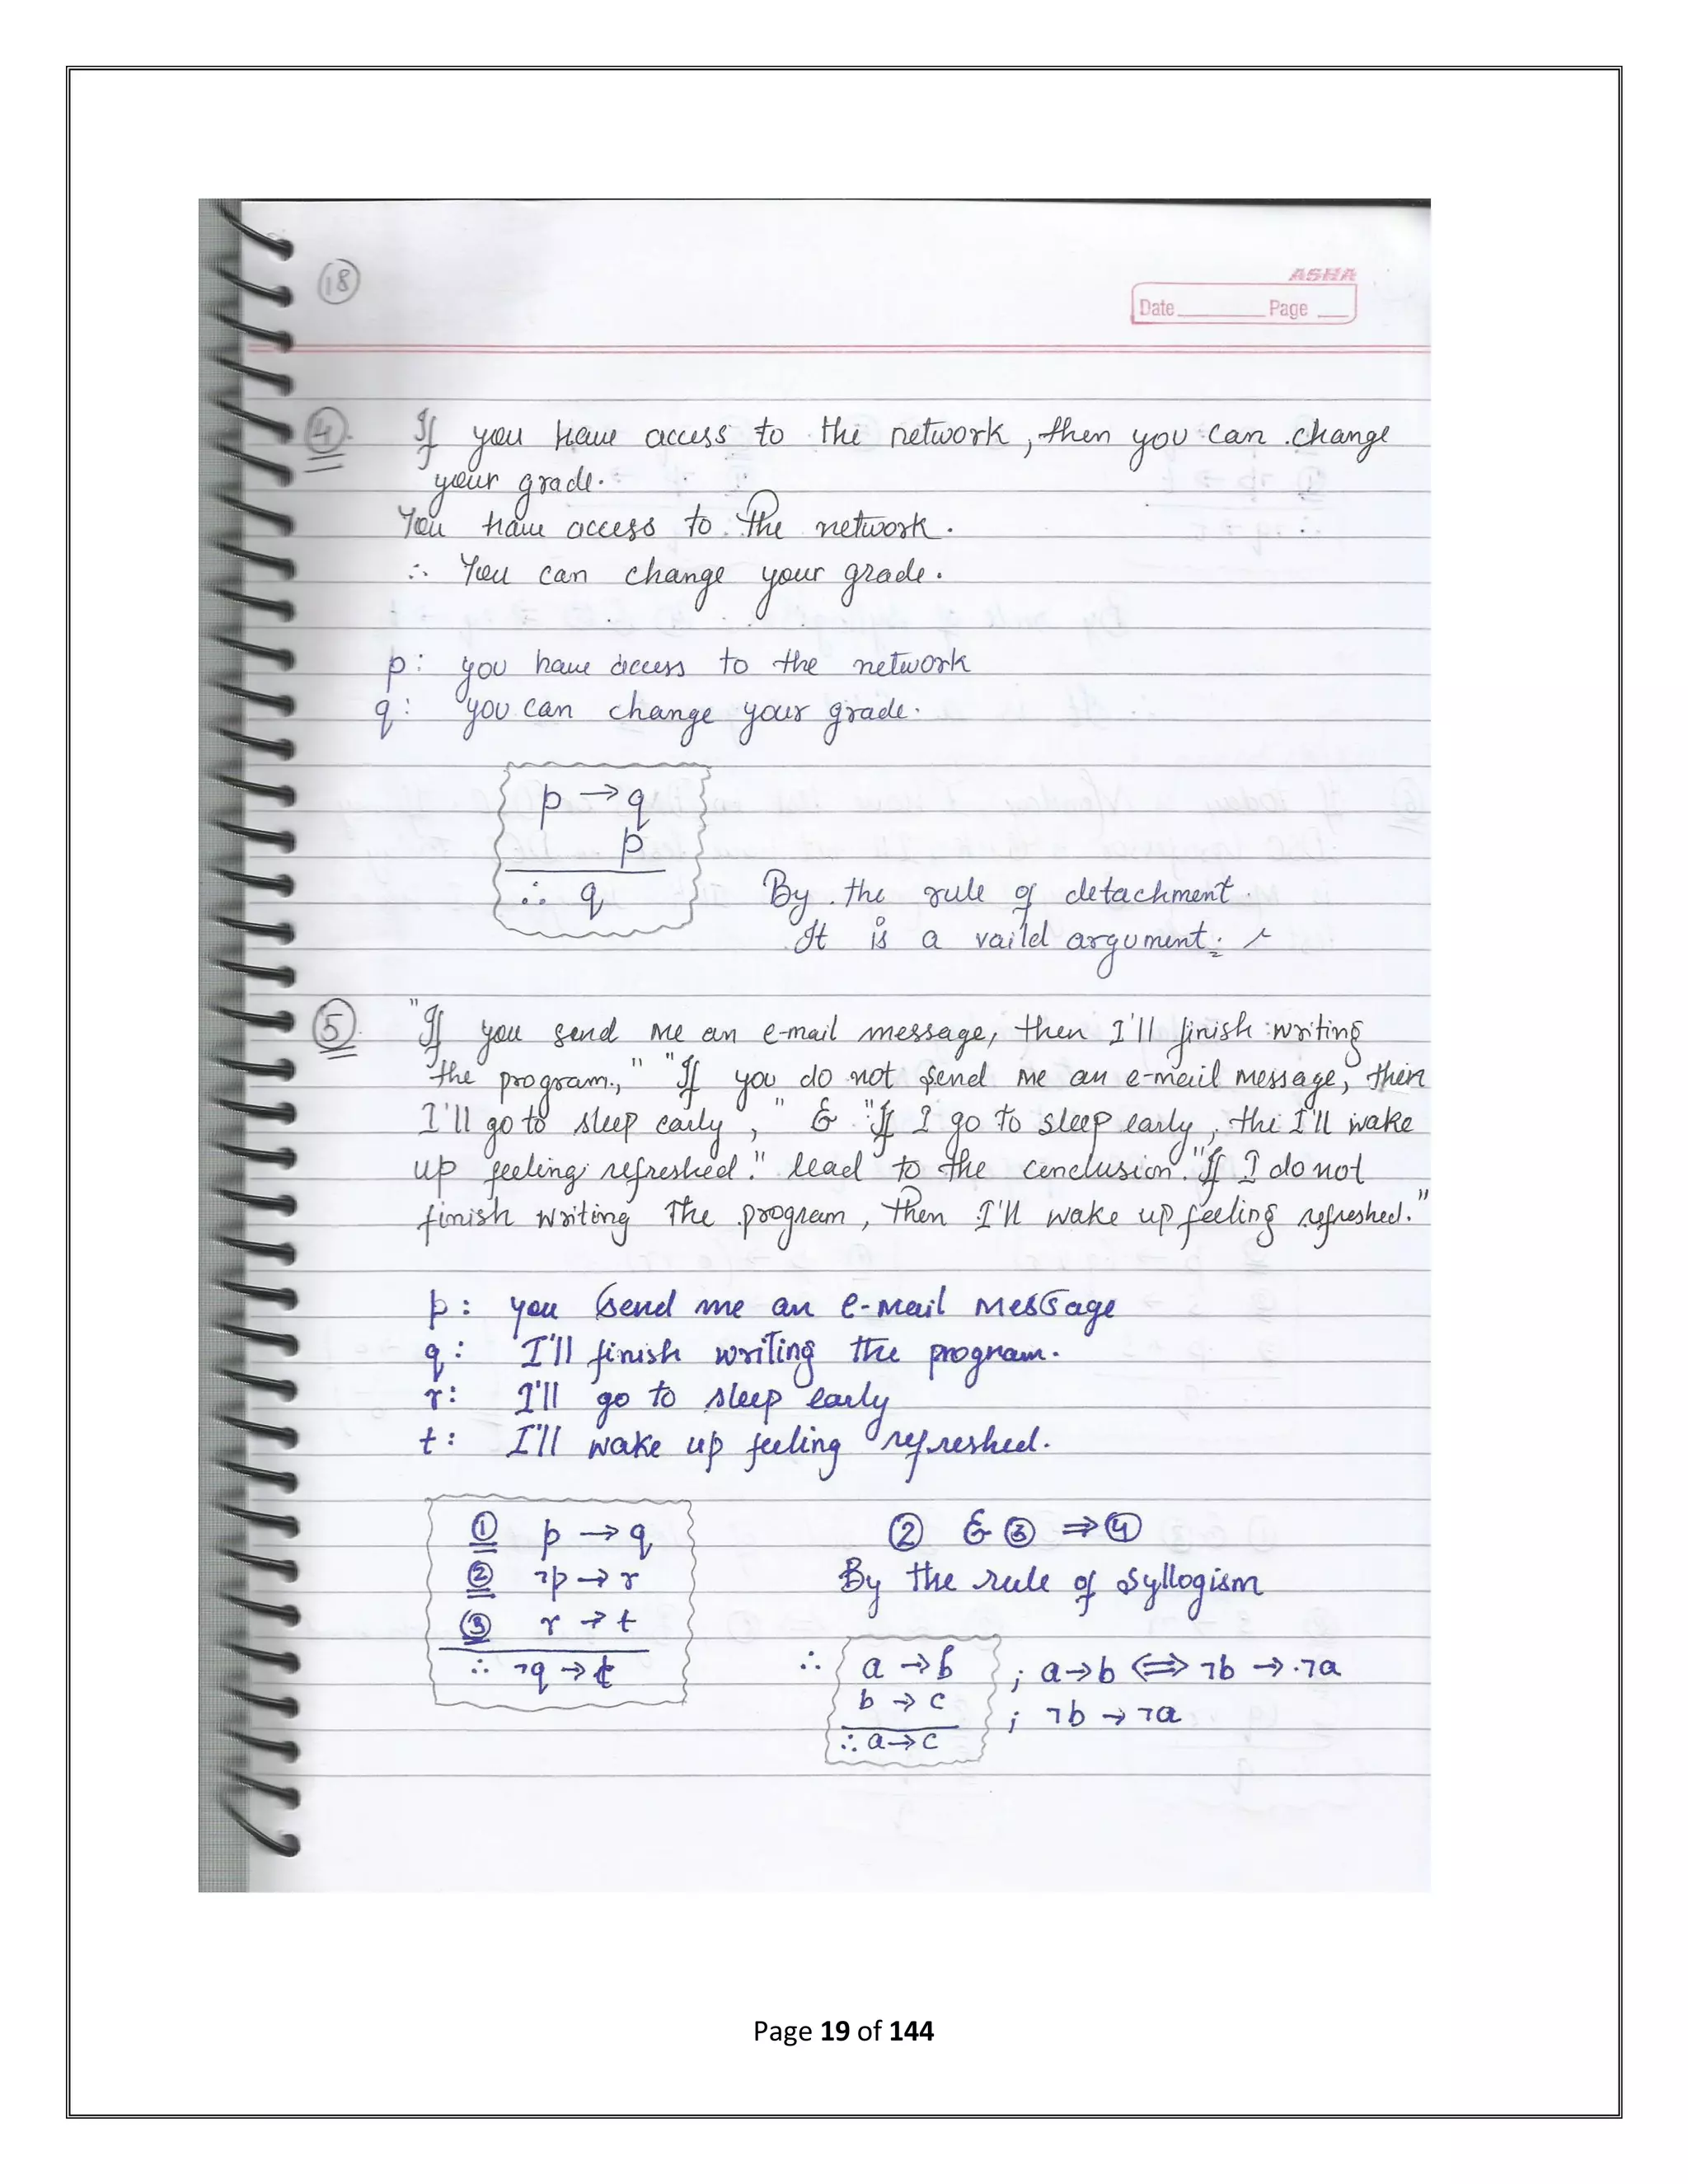 18
ASHA
Date Page
4. If you have access to the network, then you can change
your grade.
You have access to the network.
∴ You can change your grade.
p: you have access to the network
q: you can change your grade.
p → q
p
∴ q
By the rule of detachment.
It is a vaild argument.
5. "If you send me an e-mail message, then I'll finish writing
the program.," "If you do not send me an e-mail message, then
I'll go to sleep early," & "If I go to sleep early, the I'll wake
up feeling refreshed." lead to the conclusion. "If I do not
finish writing the program, then I'll wake up feeling refreshed."
p: you send me an e-mail message
q: I'll finish writing the program.
r: I'll go to sleep early
t: I'll wake up feeling refreshed.
① p → q
② ¬p → r
③ r → t
∴ ¬q → t
② & ③ ⇒ ④
By the rule of syllogism
∴ a → b ; a → b ⟺ ¬b → ¬a
b → c ; ¬b → ¬a
∴ a → c
Page 19 of 144